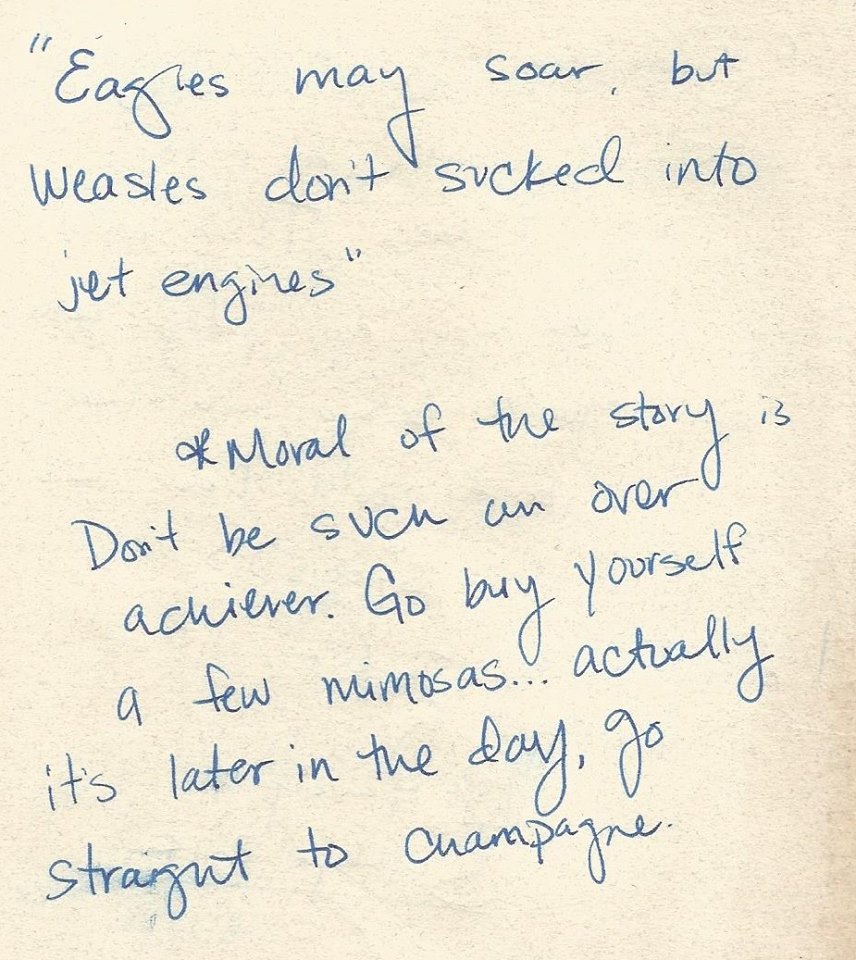 "Eagles may soar, but
weasles don't sucked into
jet engines"
*Moral of the story is
Don't be such an over
achiever. Go buy yourself
a few mimosas... actually
it's later in the day, go
straight to champagne.